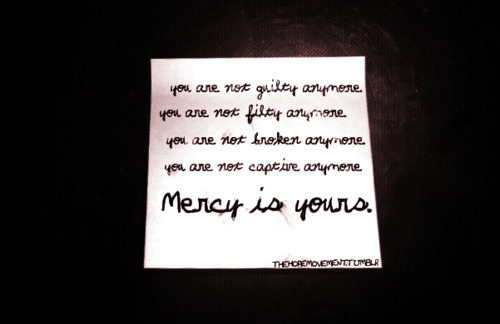 you are not guilty anymore
you are not filty anymore
you are not broken anymore
you are not captive anymore
Mercy is yours.
THEHOPEMOVEMENT.TUMBLR